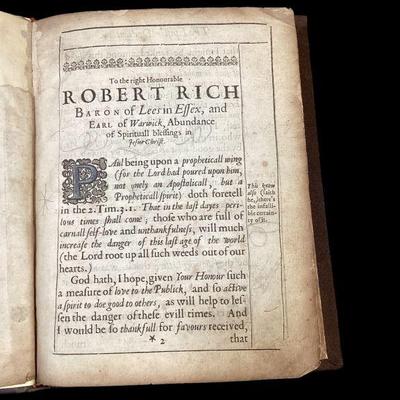 To the right Honourable
ROBERT RICH
BARON of Lees in Essex, and
EARL of Warwick, Abundance
of Spirituall blessings in
Jesus Christ.
PAul being upon a propheticall wing
(for the Lord had poured upon him,
not onely an Apostolicall, but a
Propheticall spirit) doth foretell
in the 2. Tim. 3. 1. That in the last dayes peri-
lous times shall come; those who are full of
carnall self-love and unthankfulness, will much
increase the danger of this last age of the world
(the Lord root up all such weeds out of our
hearts.)
God hath, I hope, given Your Honour such
a measure of love to the Publick, and so active
a spirit to doe good to others, as will help to les-
sen the danger of these evill times. And
I would be so thankfull for favours received,
* 2 that
This know
also (saith
he,) there's
the infalli-
ble certain-
ty of it.